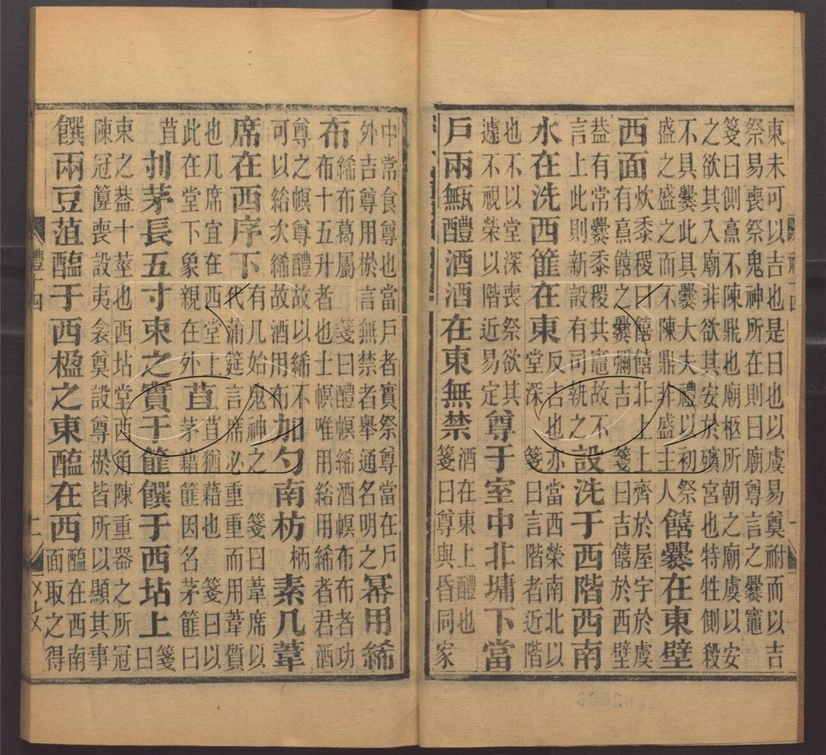 東未可以吉也是日也以虞易奠祔而以吉
祭易喪祭鬼神所在則曰廟尊言之爨竈
箋曰側亯不陳鼎也廟柩所朝之廟虞以安
之欲其入廟非欲其安於殯宮也特牲側殺
不具爨此具爨大夫禮以初祭
盛之盛之而不陳鼎非盛主人
饎爨在東壁
西面
炊黍稷曰饎饎北上上齊於屋宇於虞
有亯饎之爨彌吉 箋曰吉饎於西壁
益有常爨黍稷共竈故不
言上此則新設有司執之
設洗于西階西南
水在洗西篚在東
反吉也亦當西榮南北以
堂深 箋曰言階者近階
也不以堂深喪祭欲其
遽不視榮以階近易定
尊于室中北墉下當
戶兩甒醴酒酒在東無禁
酒在東上醴也
箋曰尊與昏同家
中常食尊也當戶者賓祭尊當在戶
外吉尊用棜言無禁者舉通名明之
冪用絺
布
絺布葛屬 箋曰醴幎絺酒幎布布者功
布十五升者也士幎唯用綌用絺者君酒
尊之幎尊醴故以絺不
可以綌次絺故酒用布
加勺南枋
柄
素几葦
席在西序下
有几始鬼神之 箋曰葦席以
代蒲筵言席必重重而用葦質
也几席宜在西堂上
此在堂下象親在外
苴
苴猶藉也 箋曰以
茅藉篚因名茅篚曰
苴
刌茅長五寸束之實于篚饌于西坫上
箋曰
束之葢十莖也西坫堂西角陳重器之所冠
陳冠簋喪設夷衾奠設尊棜皆所以顯其事
饌兩豆菹醢于西楹之東醢在西
醢在西南
面取之得
禮十四
十一